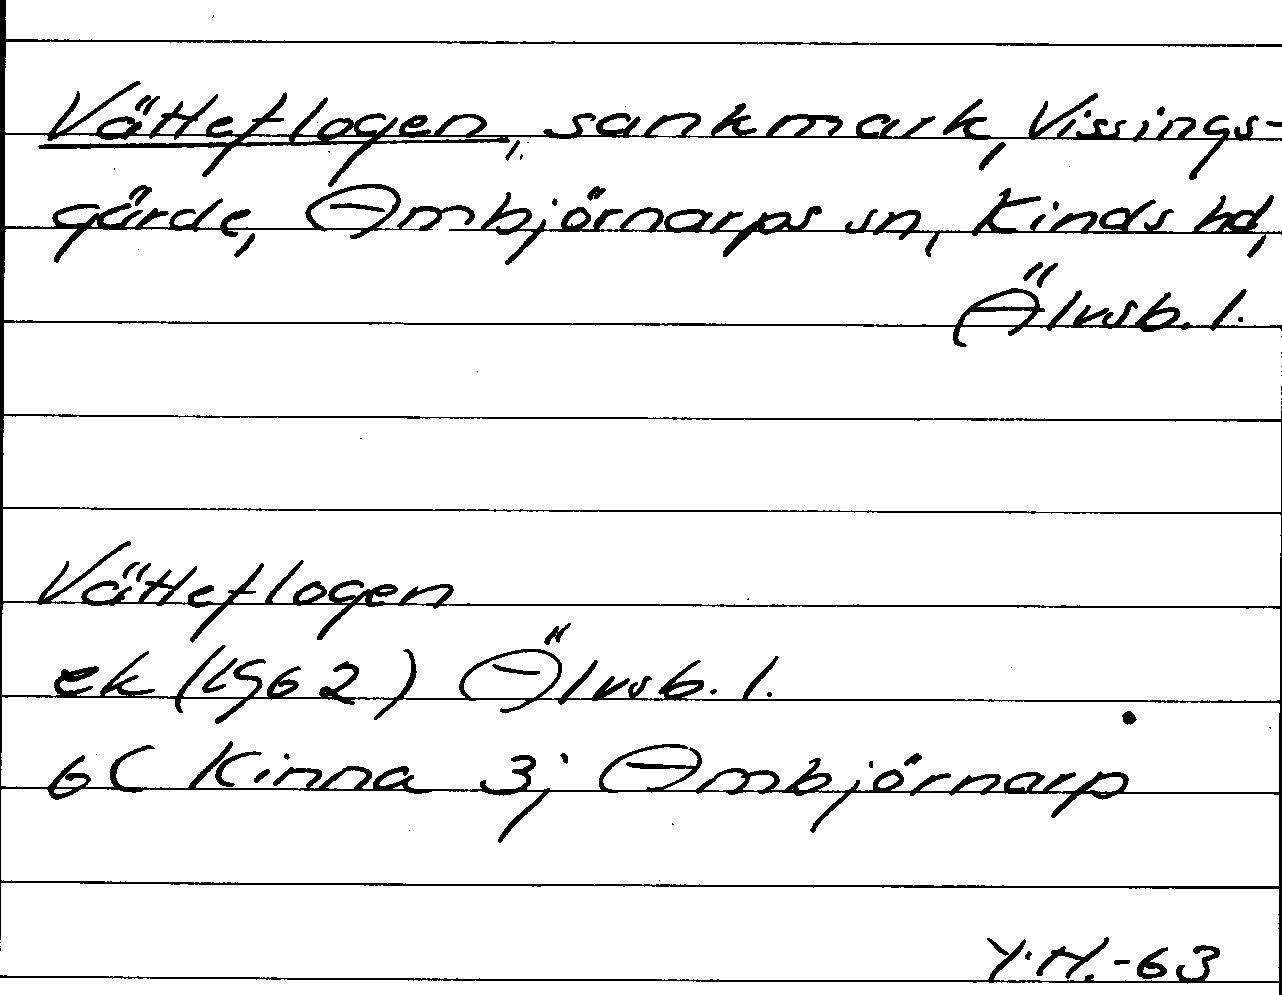 Vätteflogen, sankmark, Vissings-
gärde, Ambjörnarps sn, Kinds hd,
Älvsb. l.
Vätteflogen
ek (1962) Älvsb. l.
6C Kinna 3j Ambjörnarp
Y.H.-63